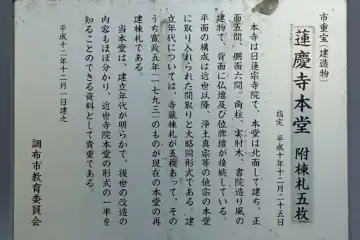 市重宝(建造物)
蓮慶寺本堂 附棟札五枚
指定 平成十年十二月二十五日
本寺は日蓮宗寺院で、本堂は北面して建ち、正
面五間、側面六間。角柱、実肘木、書院造り風の
建物で、背面に仏壇及び位牌壇が接続している。
平面の構成は近世以降、浄土真宗等の他宗の本堂
に取り入れられた間取りと大略同形式である。建
立年代については、寺蔵棟札が五種あって、その
うち寛政五年(一七九三)のものが現在の本堂の再
建棟札である。
当本堂は、建立年代が明らかで、後世の改造の
内容もほぼ分かり、近世寺院本堂の形式の一半を
知ることのできる資料として貴重である。
平成十二年十二月一日建之
調布市教育委員会